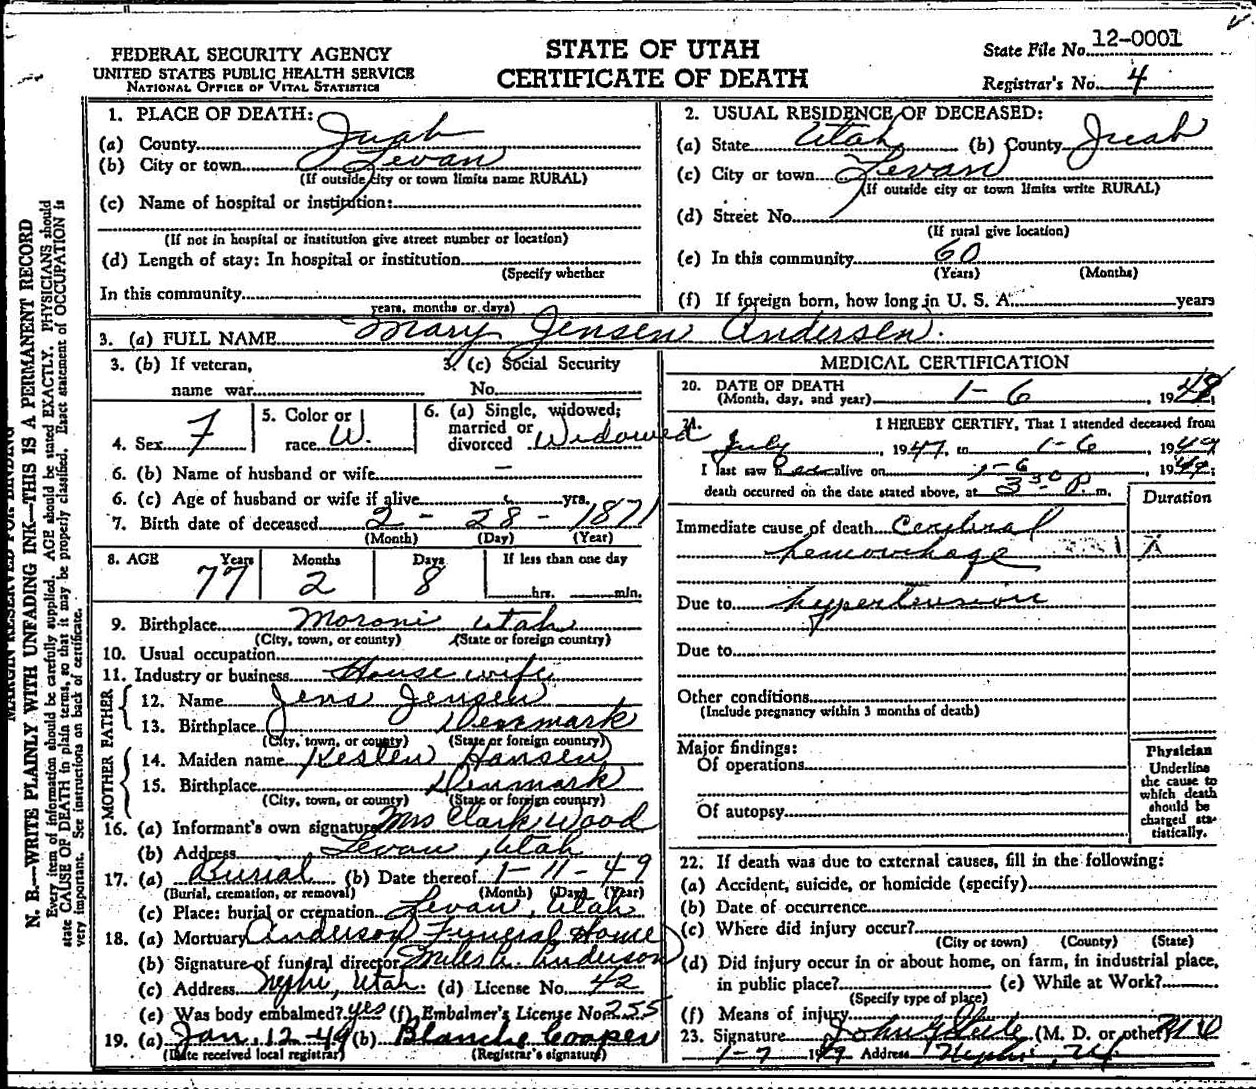 STATE OF UTAH
CERTIFICATE OF DEATH
FEDERAL SECURITY AGENCY
UNITED STATES PUBLIC HEALTH SERVICE
NATIONAL OFFICE OF VITAL STATISTICS
State File No. 12-0001
Registrar's No. 4
N. B.—WRITE PLAINLY WITH UNFADING INK—THIS IS A PERMANENT RECORD
Every item of information should be carefully supplied. AGE should be stated EXACTLY. PHYSICIANS should
state CAUSE OF DEATH in plain terms, so that it may be properly classified. Exact statement of OCCUPATION is
very important. See instructions on back of certificate.
1. PLACE OF DEATH:
(a) County Juab
(b) City or town Levan
(If outside city or town limits name RURAL)
(c) Name of hospital or institution:
(If not in hospital or institution give street number or location)
(d) Length of stay: In hospital or institution
(Specify whether
In this community
years, months or days)
2. USUAL RESIDENCE OF DECEASED:
(a) State Utah (b) County Juab
(c) City or town Levan
(If outside city or town limits write RURAL)
(d) Street No.
(If rural give location)
(e) In this community 60
(Years) (Months)
(f) If foreign born, how long in U. S. A. years
3. (a) FULL NAME Mary Jensen Andersen
3. (b) If veteran,
name war
3. (c) Social Security
No.
4. Sex F
5. Color or
race W.
6. (a) Single, widowed;
married or
divorced Widowed
6. (b) Name of husband or wife —
6. (c) Age of husband or wife if alive yrs.
7. Birth date of deceased 2 - 28 - 1871
(Month) (Day) (Year)
8. AGE Years Months Days If less than one day
77 2 8 hrs. min.
9. Birthplace Moroni Utah
(City, town, or county) (State or foreign country)
10. Usual occupation
11. Industry or business House wife
FATHER
12. Name Jens Jensen
13. Birthplace Denmark
(City, town, or county) (State or foreign country)
MOTHER
14. Maiden name Kesten Hansen
15. Birthplace Denmark
(City, town, or county) (State or foreign country)
16. (a) Informant's own signature Mrs Clark Wood
(b) Address Levan, Utah
17. (a) Burial (b) Date thereof 1-11-49
(Burial, cremation, or removal) (Month) (Day) (Year)
(c) Place: burial or cremation Levan, Utah
18. (a) Mortuary Anderson Funeral Home
(b) Signature of funeral director Miles A. Anderson
(c) Address Nephi, Utah. (d) License No. 42
(e) Was body embalmed? yes (f) Embalmer's License No. 255
19. (a) Jan. 12-49 (b) Blanche Cooper
(Date received local registrar) (Registrar's signature)
MEDICAL CERTIFICATION
20. DATE OF DEATH
(Month, day, and year) 1-6, 19
21. I HEREBY CERTIFY, That I attended deceased from
July, 1947, to 1-6, 1949
I last saw her alive on 1-6, 1949;
death occurred on the date stated above, at 3 30 P. m.
Duration
Immediate cause of death Cerebral
hemorrhage
Due to hypertension
Due to
Other conditions
(Include pregnancy within 3 months of death)
Major findings:
Of operations
Of autopsy
Physician
Underline
the cause to
which death
should be
charged sta-
tistically.
22. If death was due to external causes, fill in the following:
(a) Accident, suicide, or homicide (specify)
(b) Date of occurrence
(c) Where did injury occur?
(City or town) (County) (State)
(d) Did injury occur in or about home, on farm, in industrial place,
in public place? (e) While at Work?
(Specify type of place)
(f) Means of injury
23. Signature John (M. D. or other) M D
1-7 1949 Address Nephi, Ut.